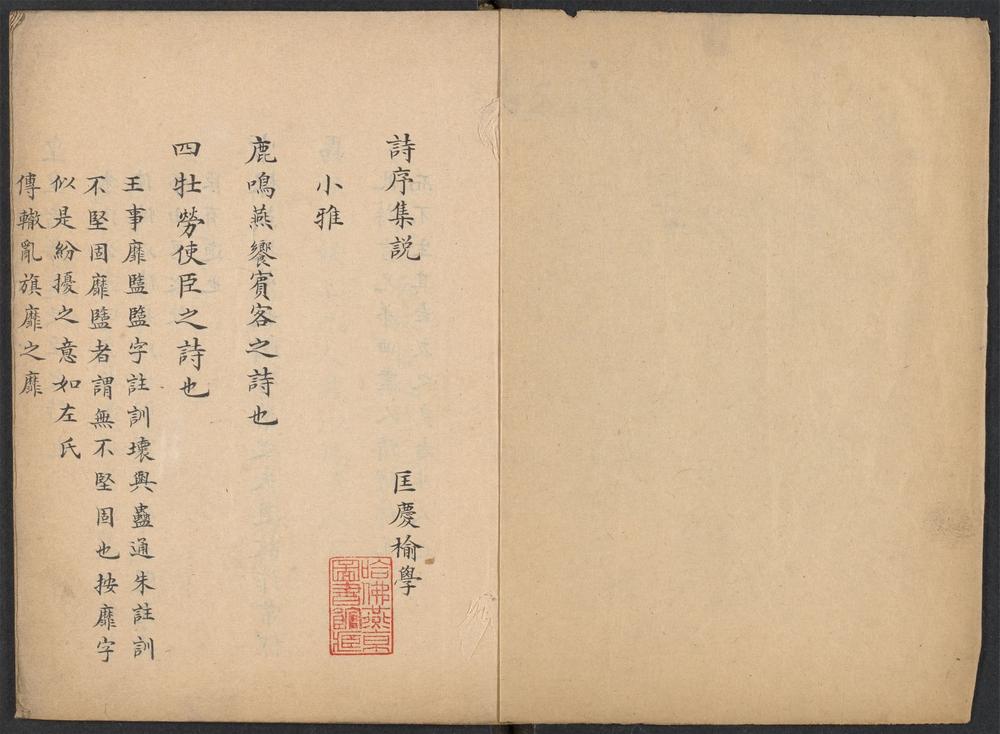 詩序集説 匡慶榆學
小雅
鹿鳴燕饗賓客之詩也
四牡勞使臣之詩也
王事靡盬盬字註訓壞與蠱通朱註訓
不堅固靡盬者謂無不堅固也按靡字
似是紛擾之意如左氏
傳轍亂旗靡之靡
哈佛燕京
圖書館藏